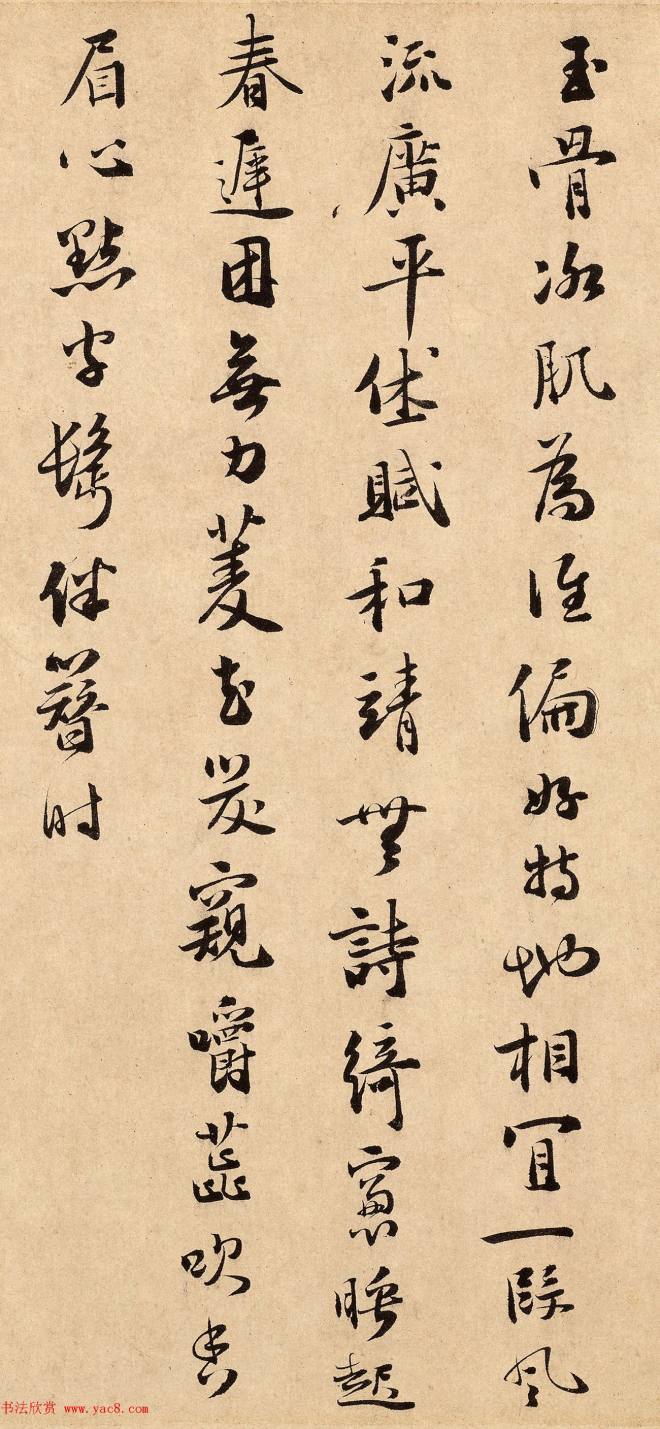 玉骨冰肌為誰偏好特地相宜一段風
流廣平休賦和靖無詩綺窻睡起
春遲困無力菱花笑窺嚼蕊吹香
眉心點處鬢伴簪時
书法欣赏 www.yac8.com